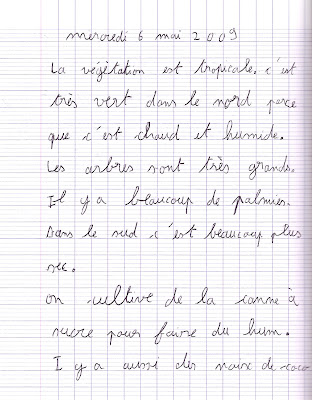 mercredi 6 mai 2009
La végétation est tropicale. c'est
très vert dans le nord parce
que c'est chaud et humide.
Les arbres sont très grands.
Il y a beaucoup de palmier.
Dans le sud c'est beaucoup plus
sec.
on cultive de la canne à
sucre pour faire du hum.
I y a aussi des noix de coco